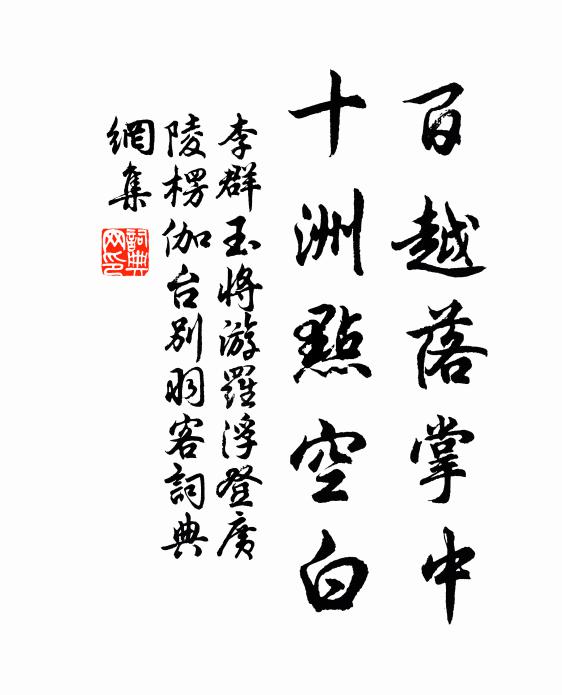 百越落掌中
十洲點空白
李群玉將游羅浮登廣
陵楞伽台別羽客詞典
網集
詞典網印